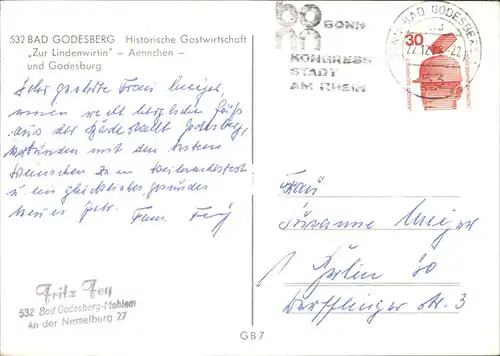 532 BAD GODESBERG Historische Gastwirtschaft
„Zur Lindenwirtin" – Aennchen –
und Godesburg
Sehr geehrte Frau
einen recht herzlichen Gruß
aus der Bäderstadt Godesberg,
verbunden mit den besten
Wünschen zum Weihnachtsfest
u. ein glückliches, gesundes
neues Jahr. Fam. Fey
Fritz Fey
532 Bad Godesberg-Mehlem
An der Nesselburg 27
GB7
BONN
KONGRESS
STADT
AM RHEIN
BONN-BAD GODESBERG
30
53
Frau
Susanne
Berlin 30
Derfflinger Str. 3